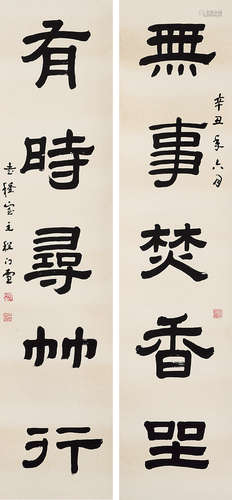 無事焚香坐
辛丑年六月
有時尋竹行
書種室主程门雪